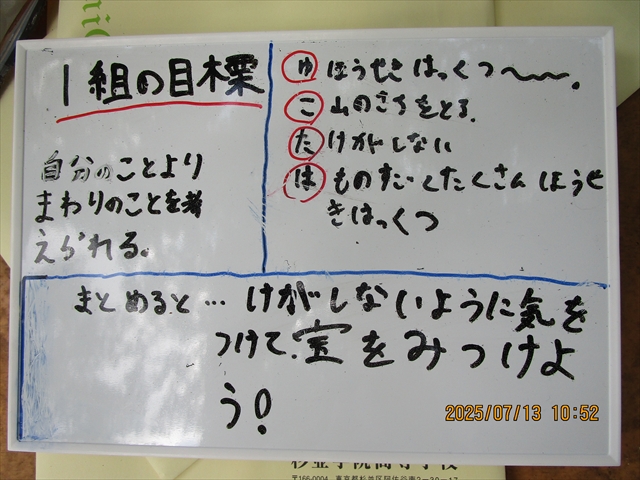 1組の目標
自分のことより
まわりのことを考
えられる。
ゆ ほうせきはっくつ〜〜〜。
こ 山のさちをとる。
た けがしない
は ものすごくたくさんほうせ
きはっくつ
まとめると… けがしないように気を
つけて、宝をみつけよ
う!
2025/07/13 10:52
杉並学院高等学校
〒166-0004 東京都杉並区阿佐谷南2-30-17